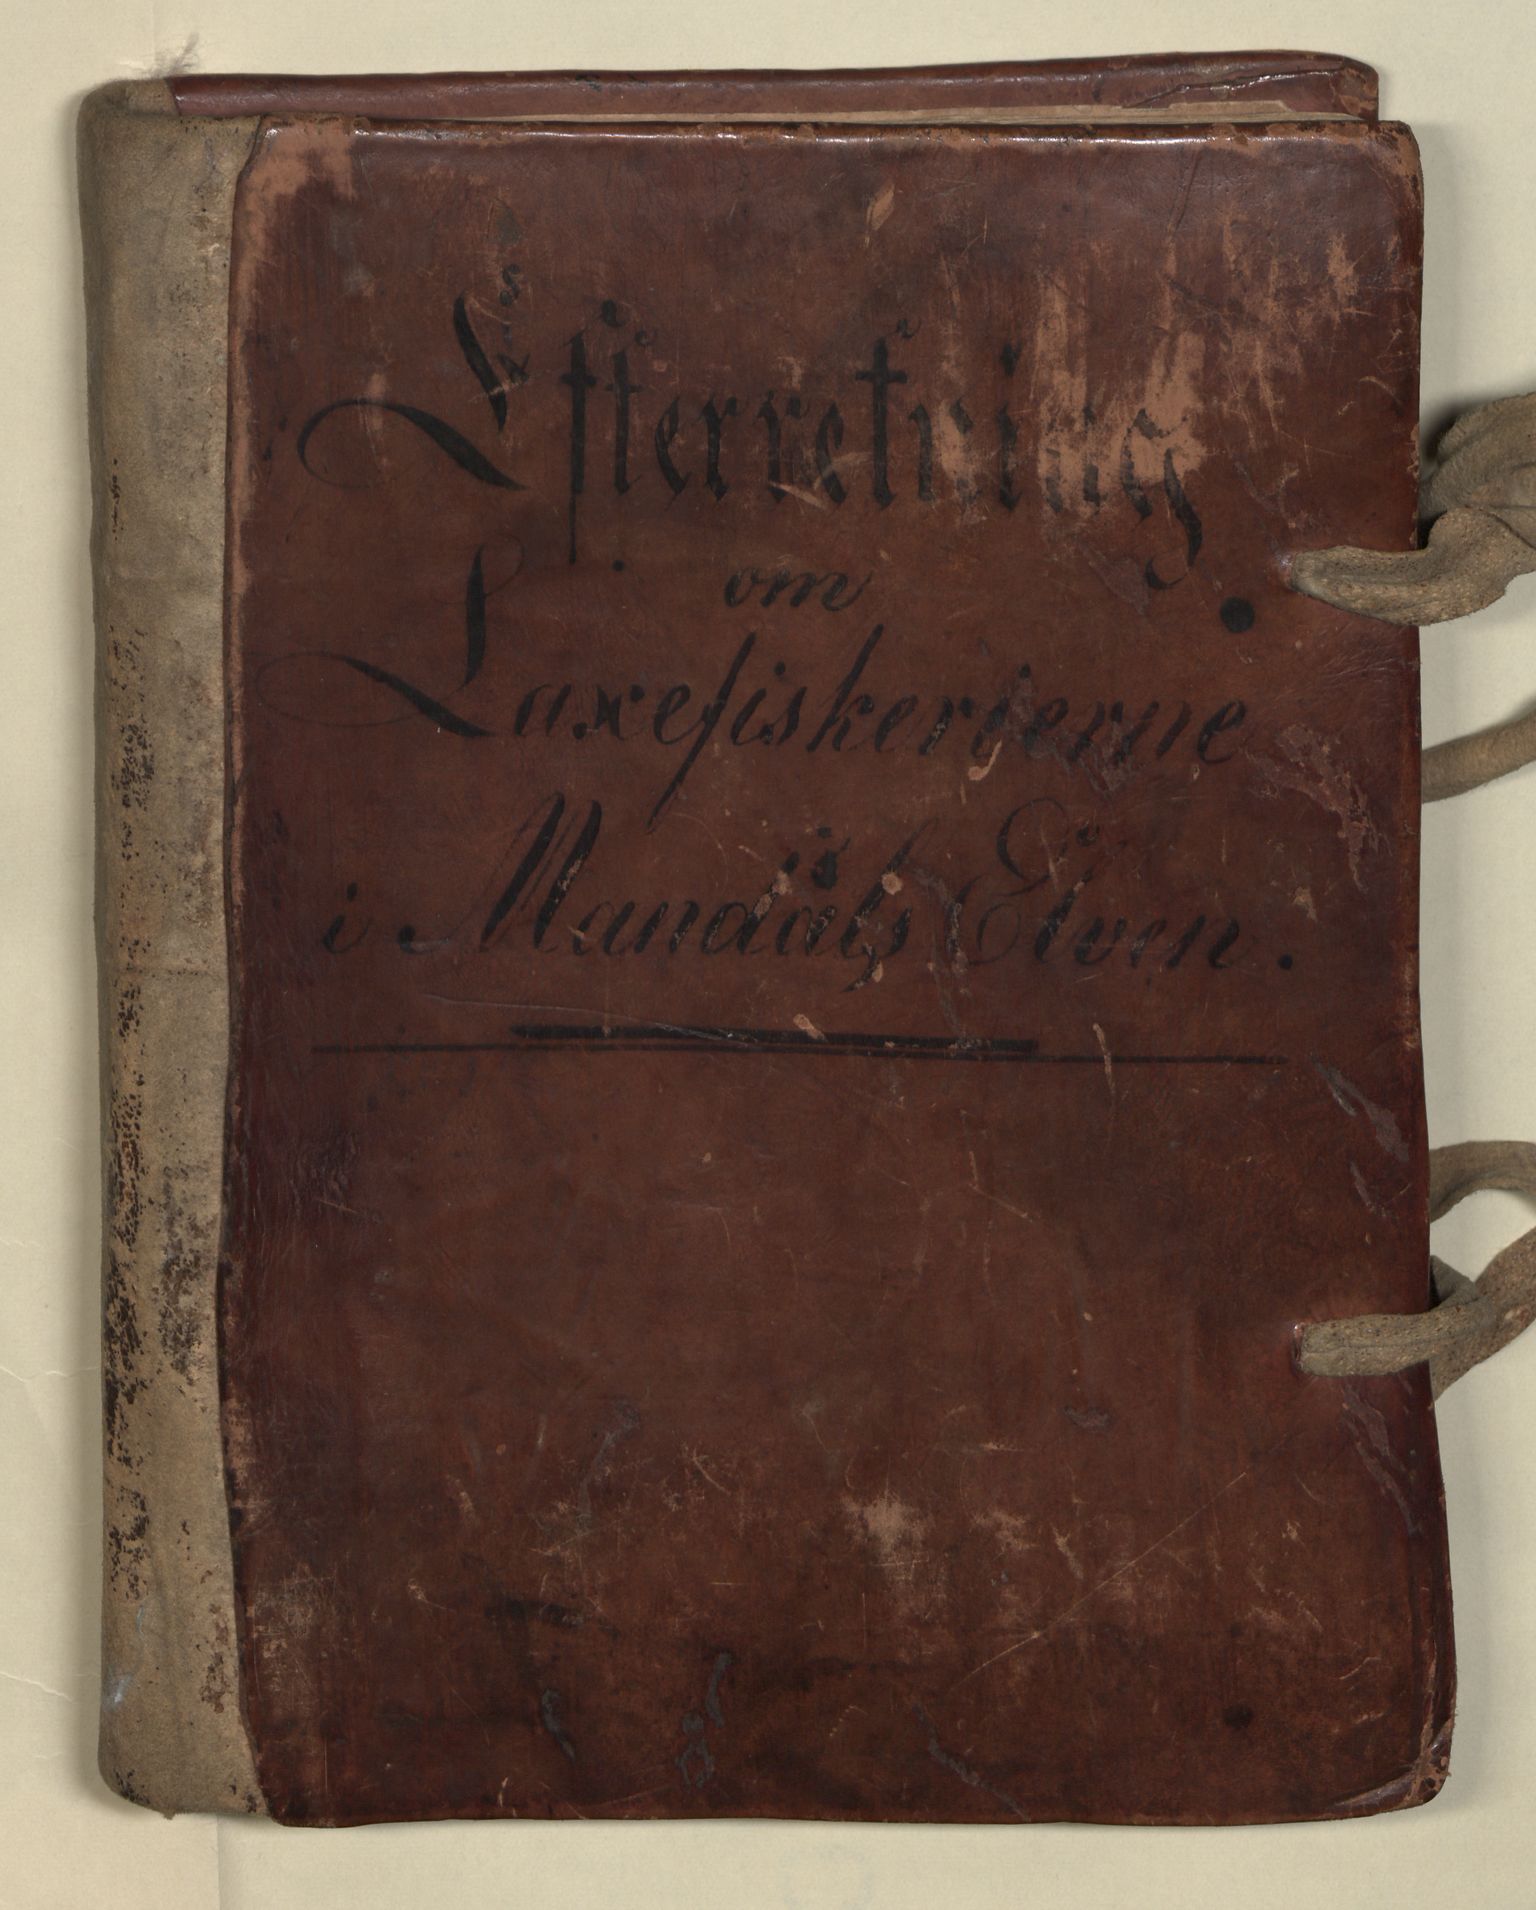 Efterretning
om
Laxefiskerierne
i Mandals Elven.